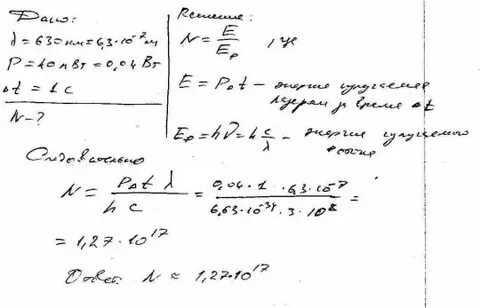 Дано:
λ = 630 нм = 6,3·10⁻⁷ м
P = 40 мВт = 0,04 Вт
Δt = 1 с
N - ?
Решение:
N = E/Eₚ , где
E = PΔt – энергия излучаемая
лазером за время Δt
Eₚ = hν = h c/λ – энергия излучаемого
Следовательно
N = PΔt λ / h c = 0,04·1·6,3·10⁻⁷ / 6,63·10⁻³⁴·3·10⁸ =
= 1,27·10¹⁷
Ответ: N ≈ 1,27·10¹⁷